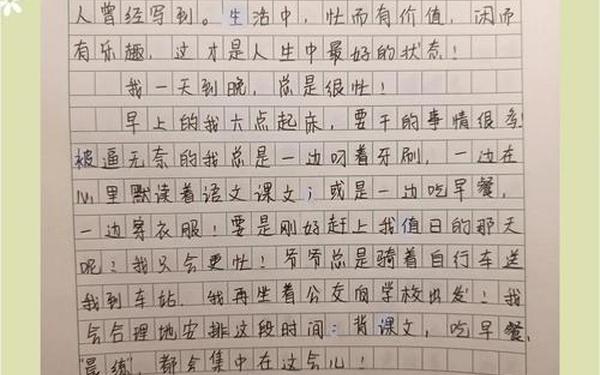 人曾经写到。生活中，忙而有价值，闲而
有乐趣，这才是人生中最好的状态！
我一天到晚，总是很忙！
早上的我六点起床，要干的事情很多！
被逼无奈的我总是一边叼着牙刷，一边在
心里默读着语文课文；或是一边吃早餐，
一边穿衣服！要是刚好赶上我值日的那天
呢？我只会更忙！爷爷总是骑着自行车送
我到车站，我再坐着公交向学校出发！我
会合理地安排这段时间：背课文，吃早餐，
"晨练"，都会集中在这会儿！